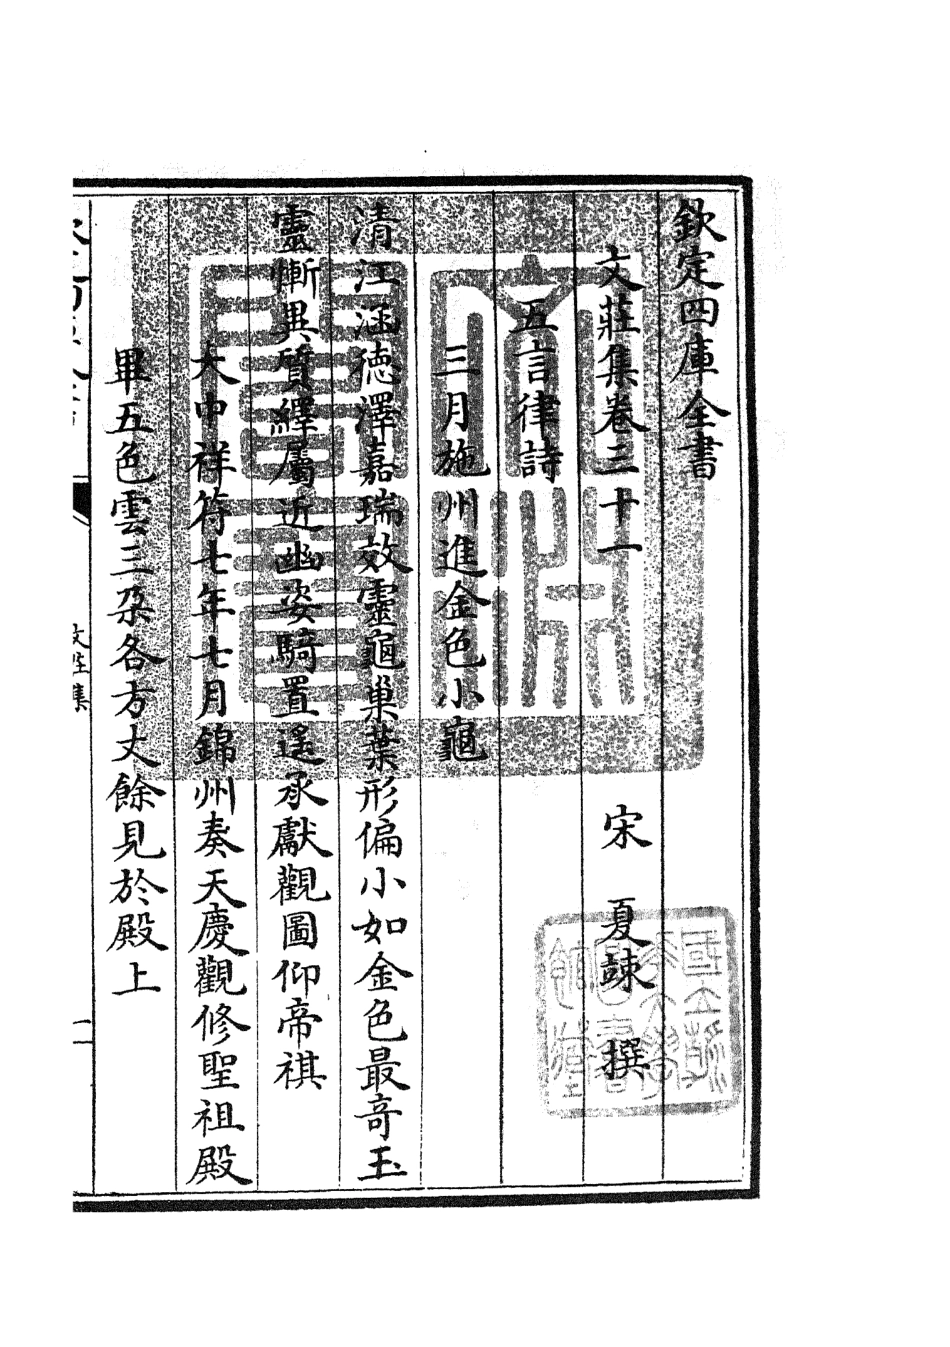 欽定四庫全書
文莊集卷三十一
宋 夏竦 撰
五言律詩
三月施州進金色小龜
清江涵德澤嘉瑞效靈龜巢葉形偏小如金色最奇玉
靈慚異質繹屬近幽姿騎置遙承獻觀圖仰帝祺
大中祥符七年七月錦州奏天慶觀修聖祖殿
畢五色雲三朶各方丈餘見於殿上